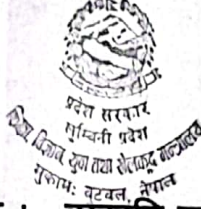 प्रदेश सरकार
लुम्बिनी प्रदेश
शिक्षा विज्ञान युवा तथा खेलकूद मन्त्रालय
मुकामः बुटवल, नेपाल